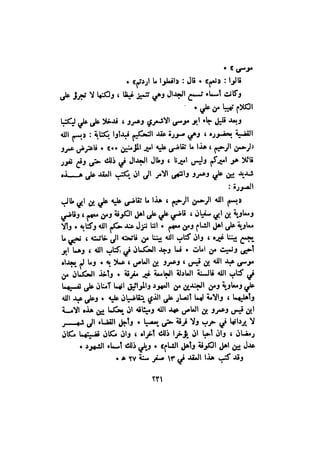 موسى » *
قالوا : «نعم» * قال : «افعلوا ما اردتم» *
وكانت أسماء تسمع الجدال وهي تتميز غيظا ، ولكنها لا تجرؤ على
الكلام تهيبا من علي *
وبعد قليل جاء ابو موسى الاشعري وعمرو ، فدخلا على علي ليكتبا
القضية بحضوره ، وهي صورة عقد التحكيم فبدأوا بكتابة : «بسم الله
الرحمن الرحيم ، هذا ما تقاضى عليه امير المؤمنين »** فاعترض عمرو
قائلا هو اميركم وليس اميرنا ، وطال الجدال في ذلك حتى وقع نفور
شديد بين علي وعمرو وانتهى الامر الى ان يكتب العقد على هـــذه
الصورة :
«بسم الله الرحمن الرحيم ، هذا ما تقاضى عليه علي بن ابي طالب
ومعاوية بن ابي سفيان ، قاضي علي على اهل الكوفة ومن معهم ، وقاضي
معاوية على اهل الشام ومن معهم * اننا ننزل عند حكم الله وكتابه * وألا
يجمع بيننا غيره ، وان كتاب الله بيننا من فاتحته الى خاتمته ، نحيي ما
أحيى ونميت من امات * فما وجد الحكمان في كتاب الله ، وهما ابو
موسى عبد الله بن قيس ، وعمرو بن العاص ، عملا به * وما لم يجداه
في كتاب الله فالسنة العادلة الجامعة غير مفرقة * وأخذ الحكمان من
علي ومعاوية ومن الجندين من العهود والمواثيق انهما آمنان على نفسيهما
وأهليهما ، والامة لهما أنصار على الذي يتقاضيان عليه * وعلى عبد الله
ابن قيس وعمرو بن العاص عهد الله وميثاقه ان يحكما بين هذه الامــة
لا يرداها في حرب ولا فرقة حتى يعصيا * وأجل القضاء الى شهـــــر
رمضان ، وان أحبا ان يؤخرا ذلك أخراه ، وان مكان قضيتهما مكان
عدل بين اهل الكوفة وأهل الشام» * ويلي ذلك أسماء الشهود *
وقد كتب هذا العقد في ١٣ صفر سنة ٣٧ هـ *
٢٣١